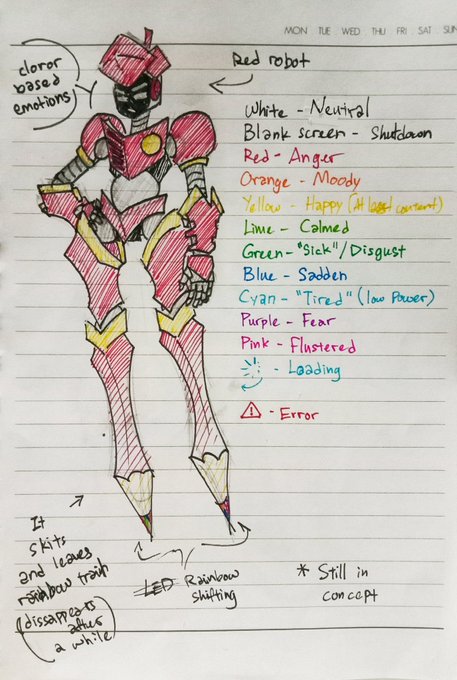 MON TUE WED THU FRI SAT SUN
cloror
based
emotions
Red robot
White - Neutral
Blank screen - Shutdown
Red - Anger
Orange - Moody
Yellow - Happy (At least content)
Lime - Calmed
Green - "Sick"/Disgust
Blue - Sadden
Cyan - "Tired" (low Power)
Purple - Fear
Pink - Flustered
- Loading
- Error
It
skits
and leaves
rainbow trail
(dissappears
after
a while)
LED Rainbow
shifting
* Still in
concept